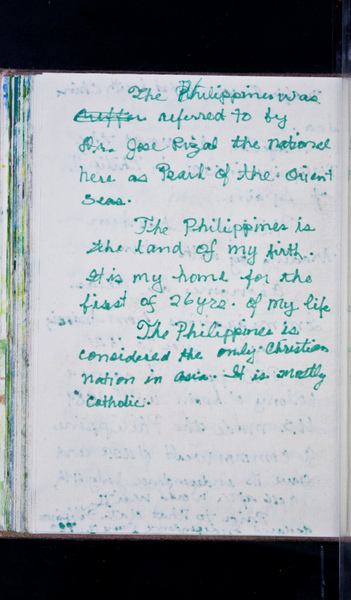 The Philippines was
referred to by
Dr. Jose Rizal the national
hero as Pearl of the Orient
Seas.
The Philippines is
the land of my birth.
It is my home for the
first of 26 yrs. of my life
The Philippines is
considered the only Christian
nation in Asia. It is mostly
Catholic.